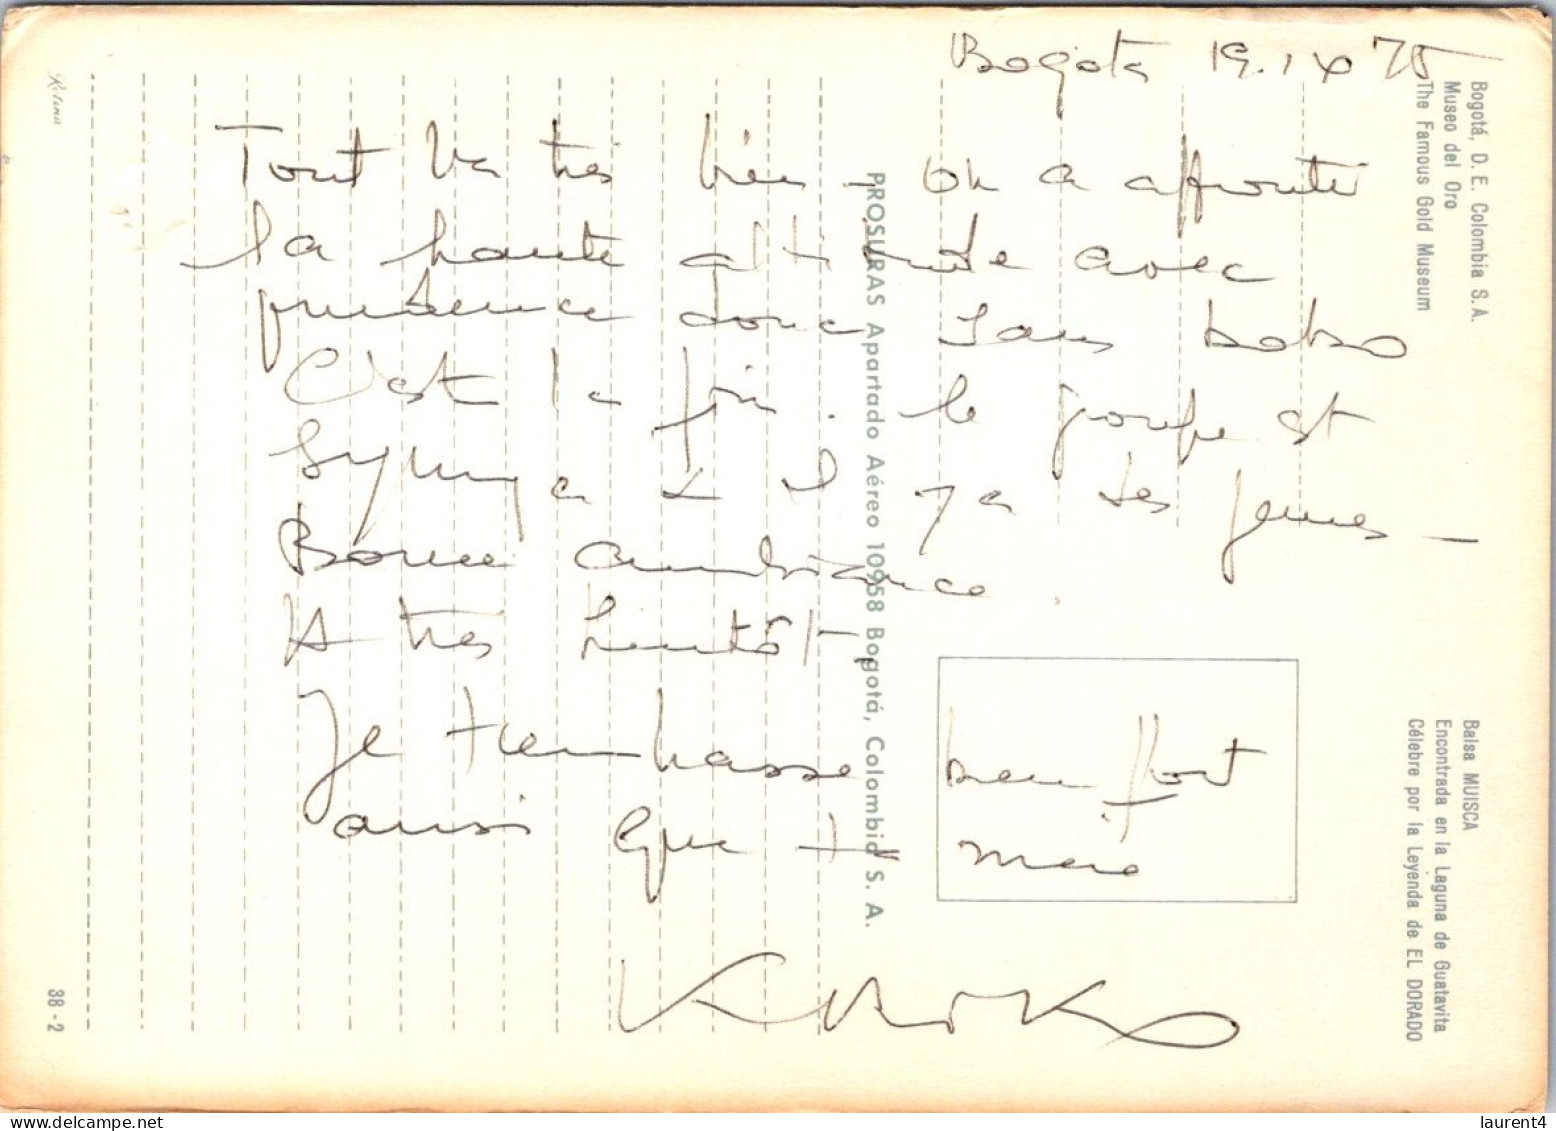 Bogota 19.IX 75
Tout va très bien - on a affronté
la haute altitude avec
prudence donc sans bobo
C'est la fin. le groupe est
sympa & il y a des jeunes -
Bonne ambiance.
A très bientôt,
Je t'embrasse bien fort
ainsi que ta mère
Bogotá, D. E. Colombia S. A.
Museo del Oro
The Famous Gold Museum
PROSURAS Apartado Aéreo 10958 Bogotá, Colombia S. A.
Balsa MUISCA
Encontrada en la Laguna de Guatavita
Célebre por la Leyenda de EL DORADO
38 - 2
delcampe.net
laurent4